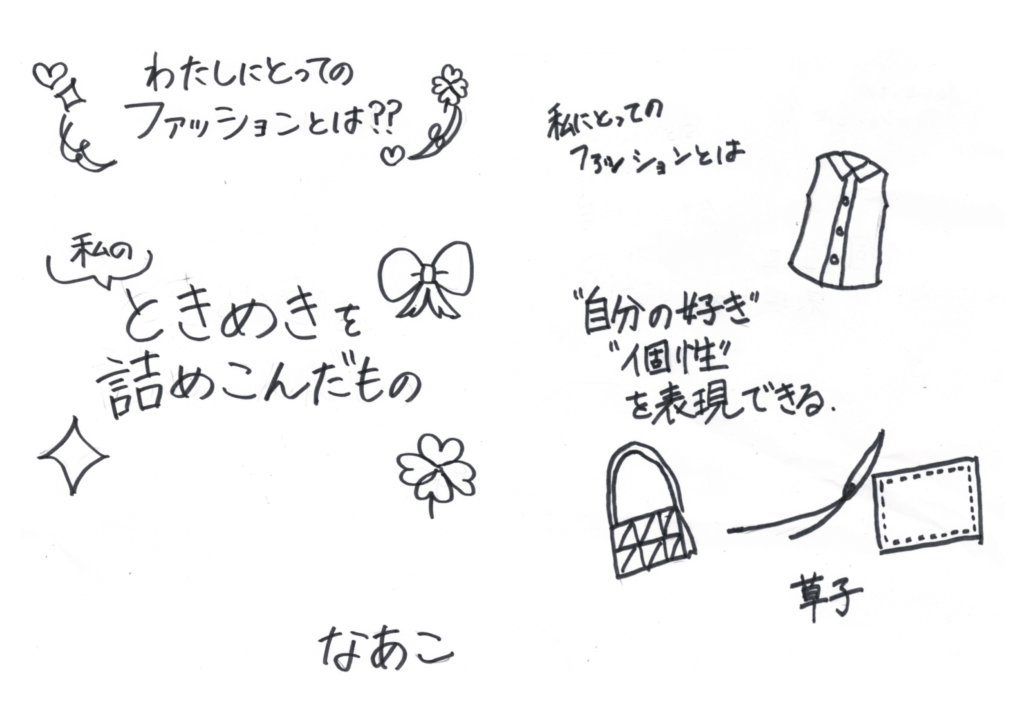 わたしにとっての
ファッションとは??
私の
ときめきを
詰めこんだもの
なあこ
私にとっての
ファッションとは
"自分の好き"
"個性"
を表現できる.
草子